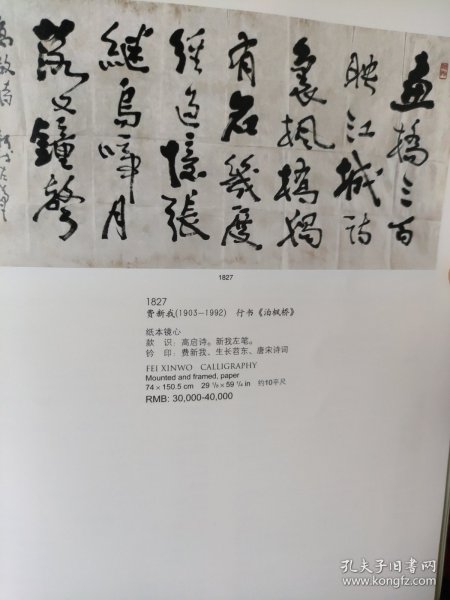 畫橋三百
映江城詩
裏楓橋獨
有名幾度
經過憶張
継烏啼月
落又鐘聲
高啟詩 新我左筆
1827
1827
费新我(1903-1992) 行书《泊枫桥》
纸本镜心
款 识:高启诗。新我左笔。
钤 印:费新我、生长苕东、唐宋诗词
FEI XINWO CALLIGRAPHY
Mounted and framed, paper
74 × 150.5 cm 29 ⅛ × 59 ¼ in 约10平尺
RMB: 30,000-40,000
孔夫子旧书网
www.kongfz.com